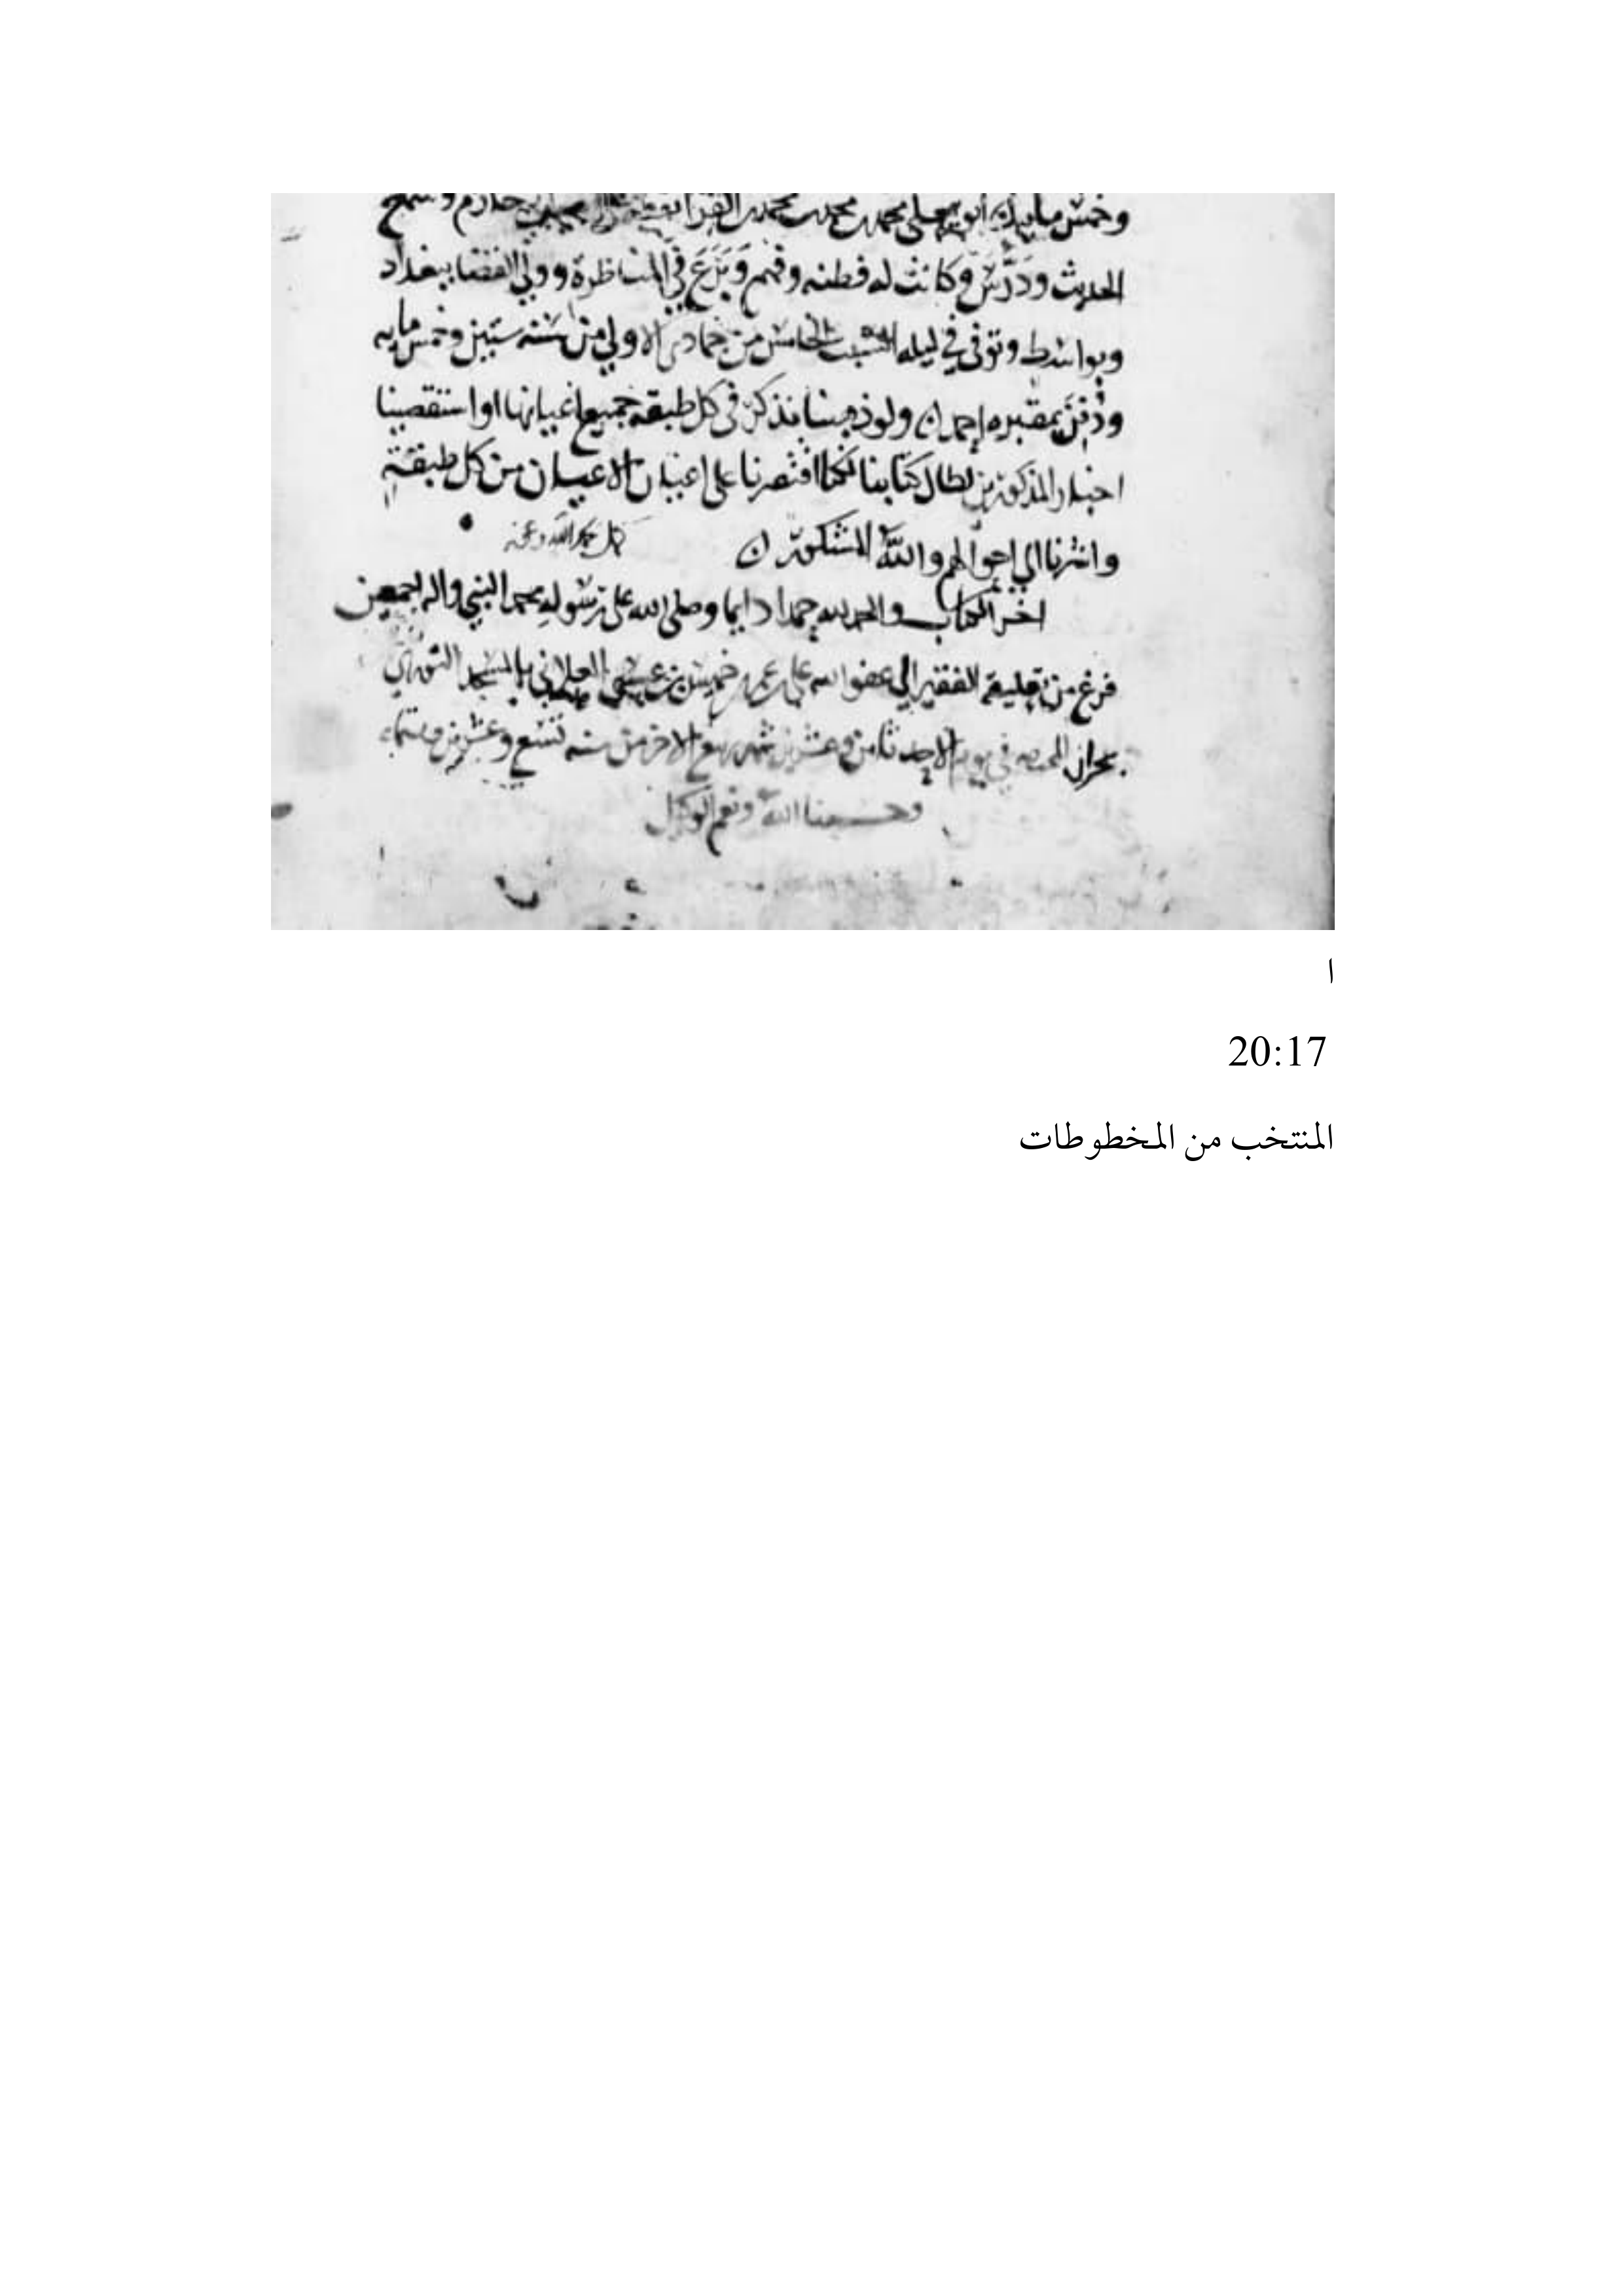 وخمس مايه ابو يعلى محمد بن محمد بن محمد بن الفرا وسمع
الحديث ودَرَّسَ وكانت له فطنه وفهم وَبَرَعَ في المناظرة وولي القضا ببغداد
وبواسط وتوفى في ليله السبت الخامس من جمادى الاولي من سنه ستين وخمس مايه
ودُفِنَ بمقبره احمد ولو ذهبنا نذكر في كل طبقه جميع اعيانها او استقصينا
اخبار المذكورين لطال كتابنا لكنا اقتصرنا على اعيان الاعيان من كل طبقة
واشرنا الي احوالهم والله المشكور كمل بحمد الله وعونه
اخر الكتاب والحمد لله حمدا دايما وصلى الله على رسوله محمد النبي واله اجمعين
فرغ من تعليقه الفقير الي عفو الله علي بن عمر بن خميس بن عيسى بالمسجد النوري
بحران في يوم الاحد ثامن وعشرين شهر ربيع الاخر من سنه تسع وعشرين وستماء
وحسبنا الله ونعم الوكيل
ا
20:17
المنتخب من المخطوطات